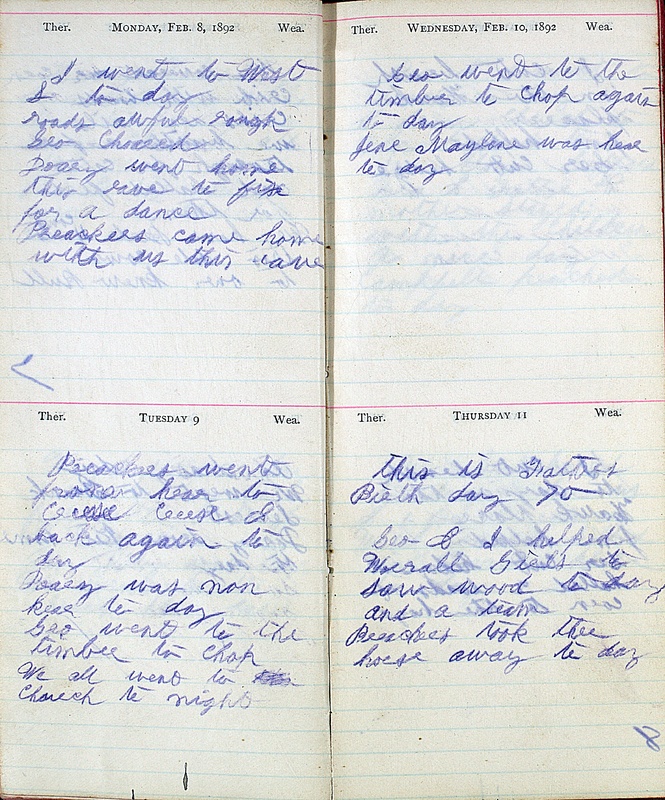 Ther. MONDAY, FEB. 8, 1892 Wea.
I went to West
to day
roads awful rough
Geo Chored
went home
this eave to fix
for a dance
Preachers came home
with us this eave
Ther. TUESDAY 9 Wea.
Preachers went
from hear to
&
back again to
day
was non
hear to day
Geo went to the
timber to Chop
We all went to
Church to night
Ther. WEDNESDAY, FEB. 10, 1892 Wea.
Geo went to the
timber to Chop again
to day
Jene Maylone was hear
to day
Ther. THURSDAY 11 Wea.
this is Fathers
Birth day 70
Geo & I helped
Worrall Giels to
Saw wood to day
and a team
Preachers took thee
horse away to day